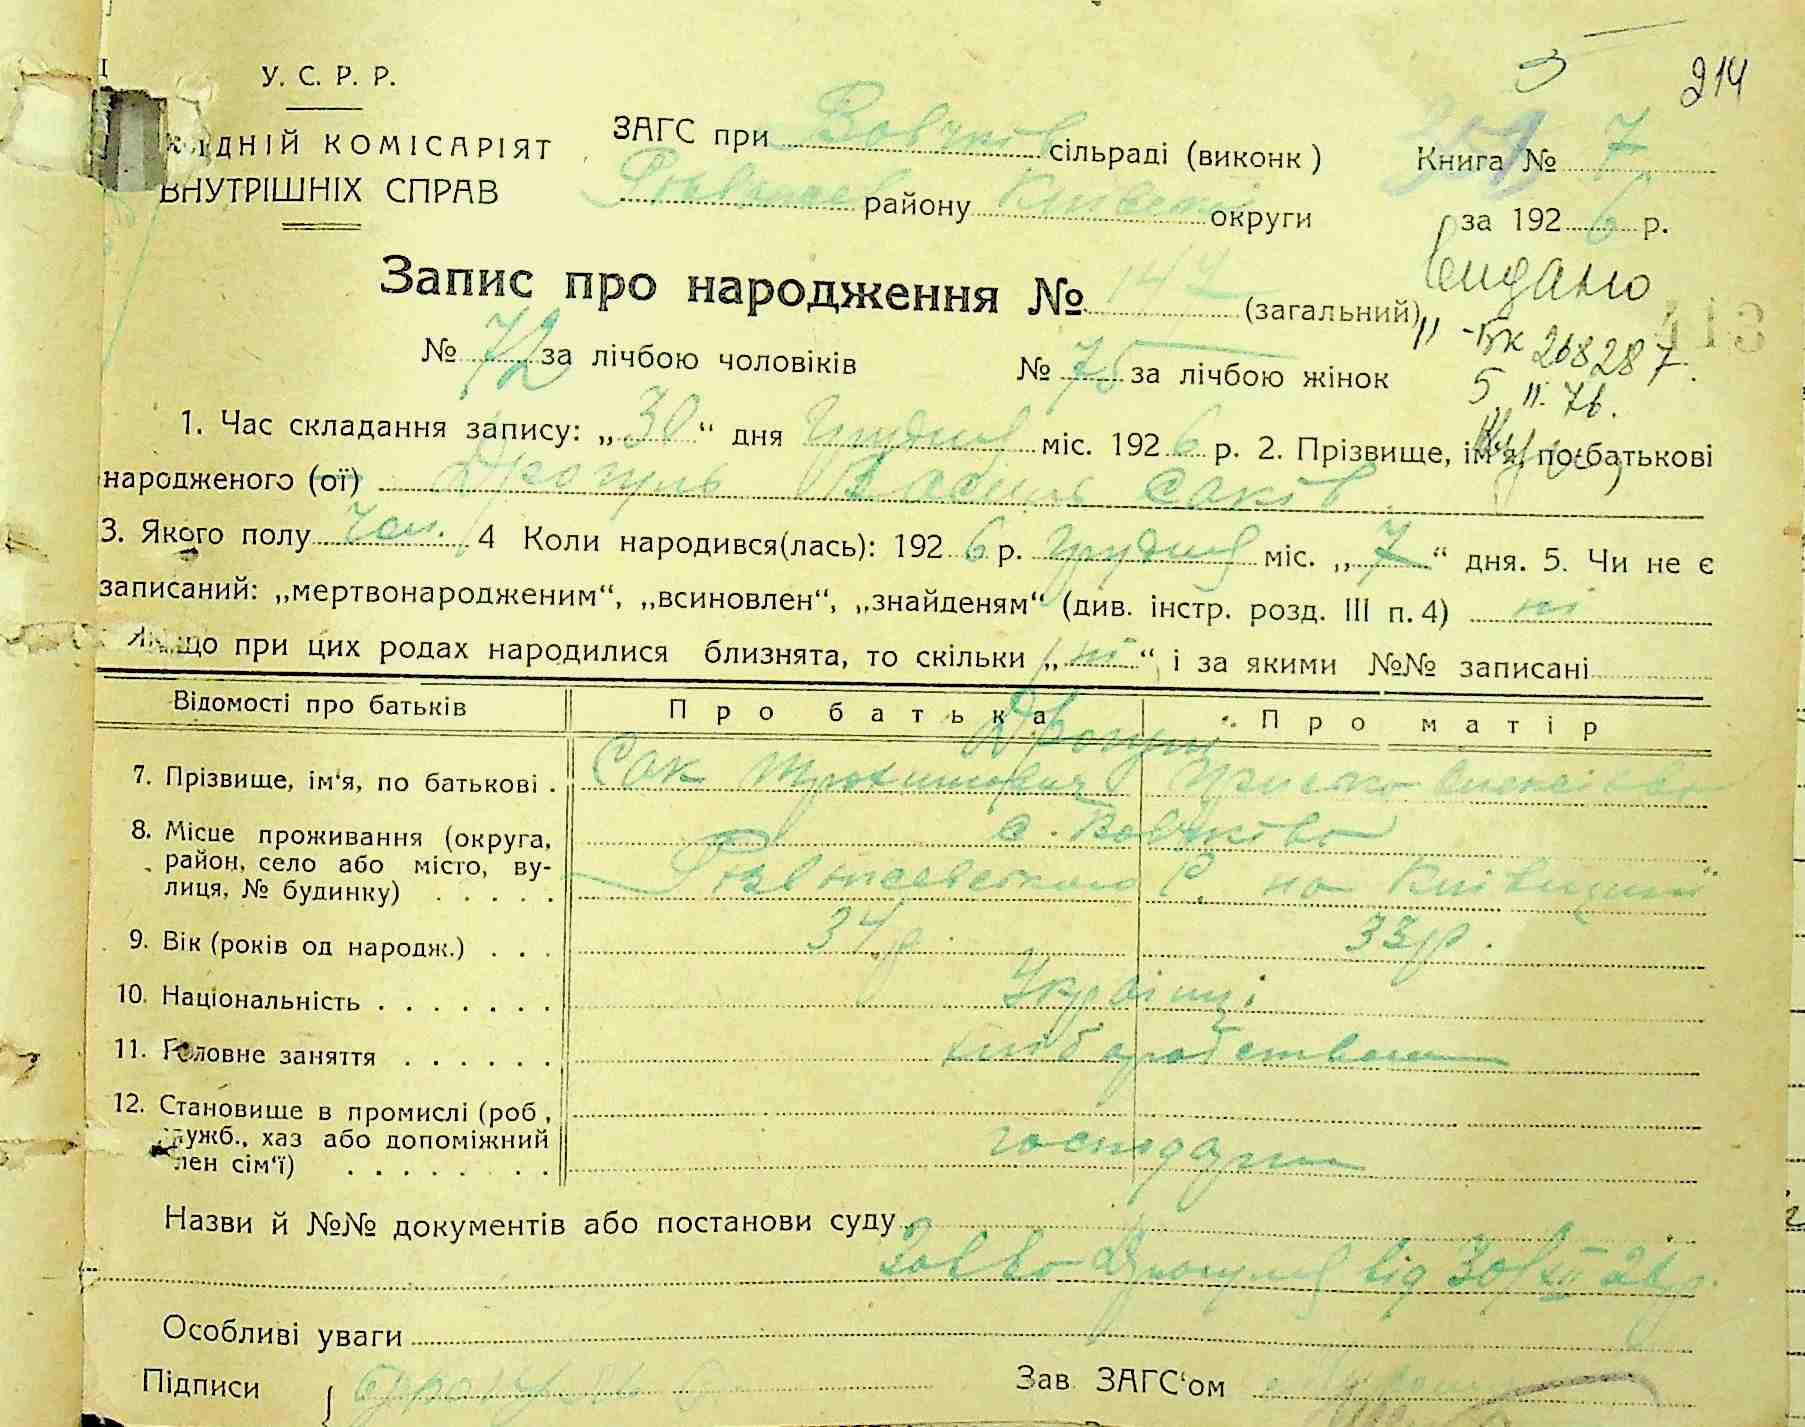 У. С. Р. Р.
КОМІСАРІЯТ
ВНУТРІШНІХ СПРАВ
ЗАГС при Вовчків сільраді (виконк)
району округи
Книга № 7
за 1926 р.
214
Запис про народження № 147 (загальний)
видано
II-БК 268287
5 II. 76.
№ 72 за лічбою чоловіків № 75 за лічбою жінок
1. Час складання запису: „30“ дня Грудня міс. 1926 р. 2. Прізвище, ім'я, по батькові
народженого (ої) Дрогуль Василь Саків
3. Якого полу чол. 4 Коли народився(лась): 1926 р. Грудня міс. „7“ дня. 5. Чи не є
записаний: „мертвонародженим“, „всиновлен“, „знайденям“ (див. інстр. розд. III п. 4) ні
Якщо при цих родах народилися близнята, то скільки „ні“ і за якими №№ записані
Відомості про батьків Про батька Про матір
Дрогулі
7. Прізвище, ім'я, по батькові . Сак Трохимович
8. Місце проживання (округа, с. Вовчково
район, село або місто, ву-
лиця, № будинку) . . . . . Р. на Київщині
9. Вік (років од народж.) . . . 34 р. 33 р.
10. Національність . . . . . . . Українці
11. Головне заняття . . . . . . хліборобством
12. Становище в промислі (роб,
служб., хаз або допоміжний господарі
член сім'ї) . . . . . . .
Назви й №№ документів або постанови суду
Заява Дрогуля від 30/XII 26 р.
Особливі уваги
Підписи Зав ЗАГС'ом